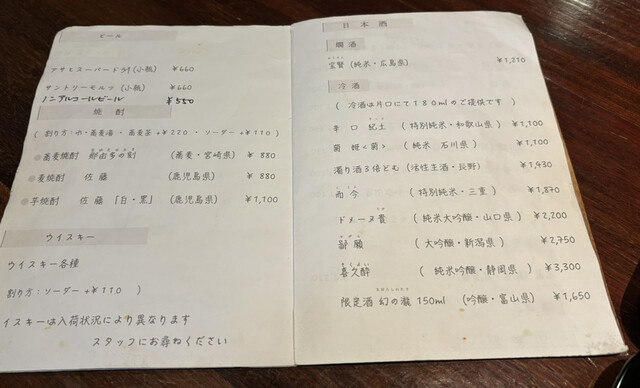 ビール
アサヒスーパードライ(小瓶) ¥660
サントリーモルツ(小瓶) ¥660
ノンアルコールビール ¥550
焼酎
( 割り方:水・蕎麦湯・蕎麦茶 +¥220 ・ソーダー +¥110 )
◎蕎麦焼酎 那由多の刻 (蕎麦・宮崎県) ¥ 880
◎麦焼酎 佐藤 (鹿児島県) ¥ 880
◎芋焼酎 佐藤 「白・黒」 (鹿児島県) ¥1,100
ウイスキー
ウイスキー各種
割り方:ソーダー +¥110 )
イスキーは入荷状況により異なります
スタッフにお尋ねください
日本酒
燗酒
宝賢 (純米・広島県) ¥1,210
冷酒
( 冷酒は片口にて180mlのご提供です )
辛口 紀土 ( 特別純米・和歌山県 ) ¥1,100
菊姫<菊> ( 純米 石川県 ) ¥1,100
濁り酒 (活性生酒・長野) ¥1,430
而今 ( 特別純米・三重 ) ¥1,870
ドメーヌ貴 ( 純米大吟醸・山口県 ) ¥2,200
鄙願 ( 大吟醸・新潟県 ) ¥2,750
喜久酔 ( 純米吟醸・静岡県 ) ¥3,300
限定酒 幻の瀧 150ml (吟醸・富山県) ¥1,650